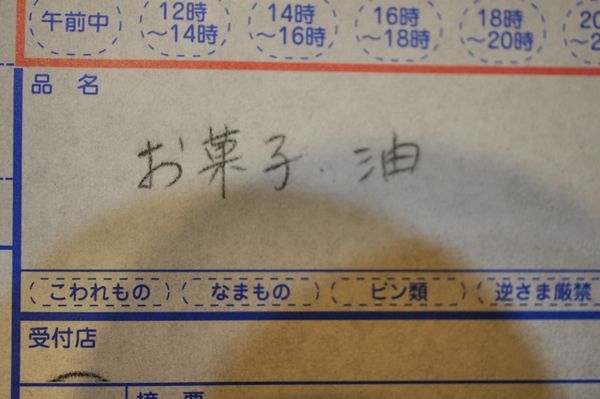 午前中 12時～14時 14時～16時 16時～18時 18時～20時
品名
お菓子・油
こわれもの なまもの ビン類 逆さま厳禁
受付店
摘要